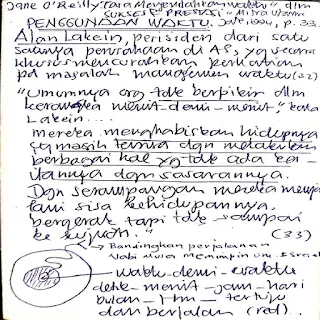 Jane O'Reilly "Cara Mengendalikan waktu" dlm
SUKSES & PRESTASI - Mitra Utama
PENGGUNAAN WAKTU. Jak, 1994, p. 33.
Alan Lakein, perisiden dari satu
satunya perusahaan di AS, yg secara
khusus mencurahkan perhatian
pd masalah manajemen waktu (32)
"Umumnya org tdk berpikir dlm
kerangka menit-demi-menit," kata
Lakein...
mereka menghabiskan hidupnya
yg masih tersisa dan melakukan
berbagai hal yg tdk ada
dan sasarannya.
Dgn serampangan mereka
sisa kehidupannya.
bergerak tapi tdk sampai
ke tujuan." (33)
Bandingkan perjalanan
Nabi Musa memimpin um. Israel
waktu-demi-waktu
detik-menit-jam-hari
bulan-thn- tertuju
dan berjalan